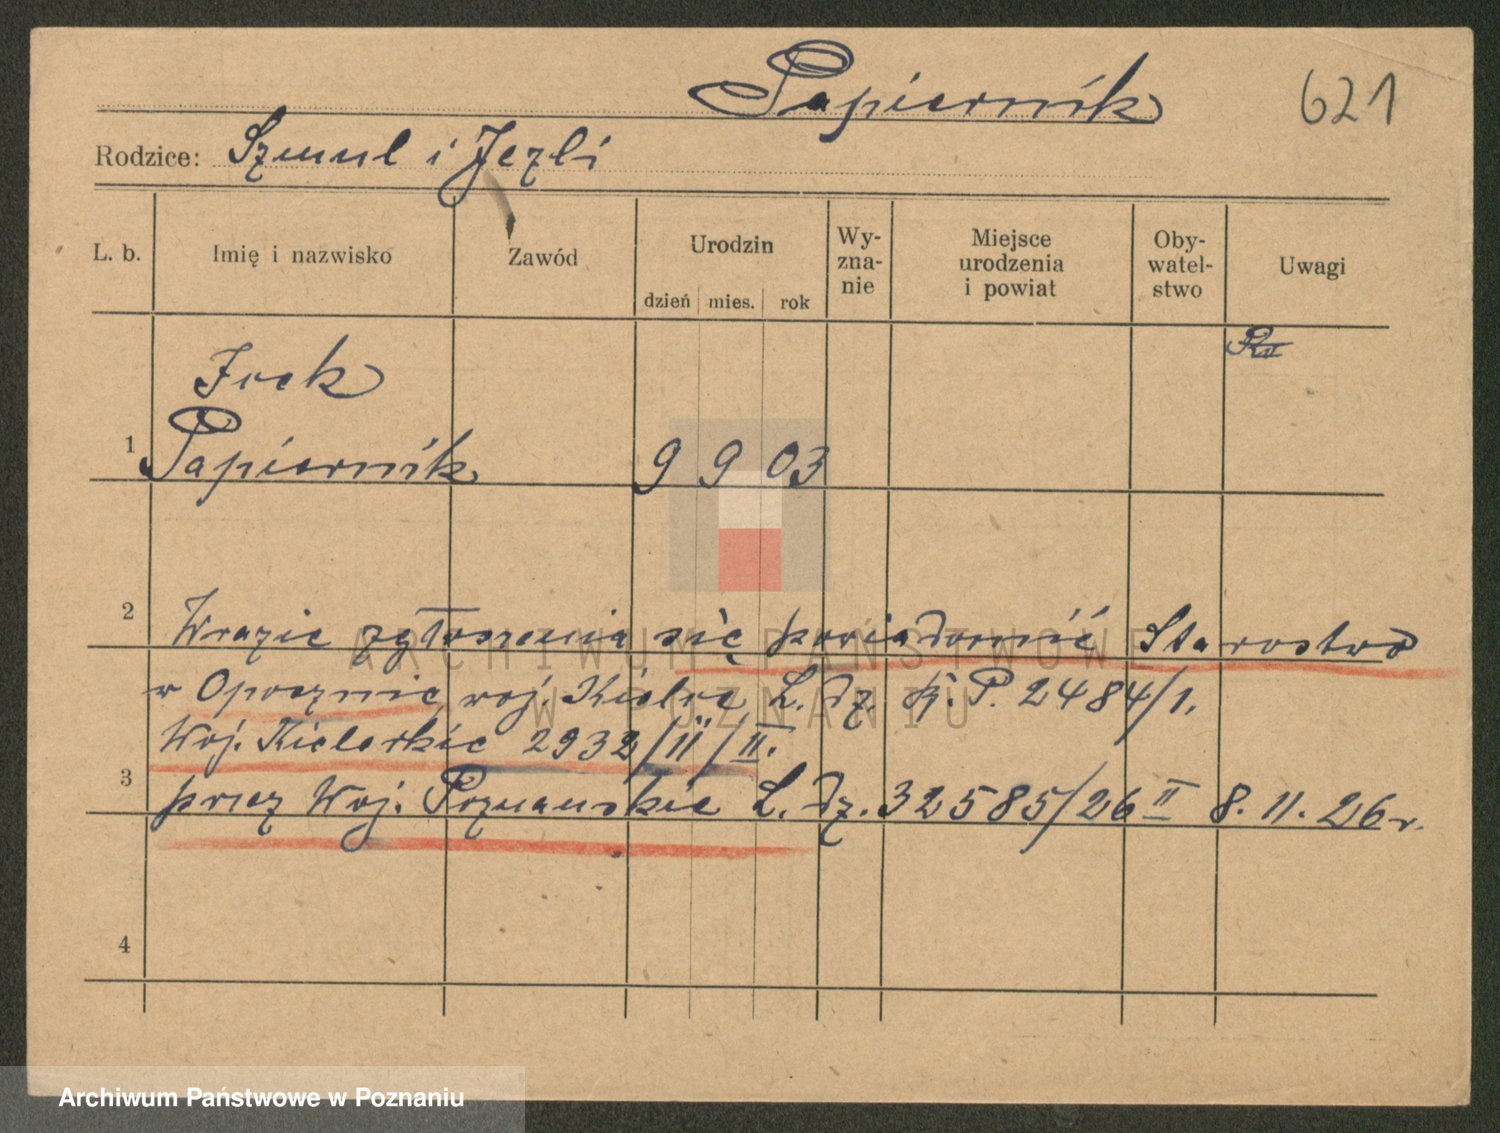 Papiernik 621
Rodzice: Szmul i Jezli
L. b. Imię i nazwisko Zawód Urodzin Wy-zna-nie Miejsce urodzenia i powiat Oby-watel-stwo Uwagi
dzień mies. rok
Icek
1 Papiernik 9 9 03
2 W razie zgłoszenia się powiadomić Starostwo
w Opocznie, woj. Kielce L. dz. K. P. 2484/1.
Woj. Kieleckie 2932/II/II.
3 przez Woj. Poznańskie L. dz. 32585/26 II 8. 11. 26 r.
4
ARCHIWUM PAŃSTWOWE
W POZNANIU
Archiwum Państwowe w Poznaniu